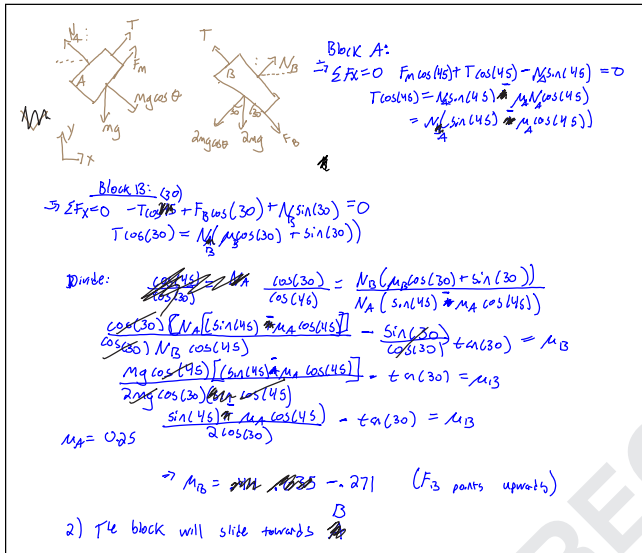 N_A
T
F_m
A
mg cos θ
mg
y
x
T
N_B
B
30
30
2mg cosθ
2mg
F_B
Block A:
ΣFx=0 F_m cos(45) + T cos(45) - N_A sin(45) = 0
T cos(45) = N_A sin(45) - μ_A N_A cos(45)
= N_A (sin(45) - μ_A cos(45))
Block B:
(30)
ΣFx=0 -T cos + F_B cos(30) + N_B sin(30) = 0
T cos(30) = N_B (μ_B cos(30) + sin(30))
Divide: cos(30)/cos(45) = N_B(μ_B cos(30) + sin(30))/N_A(sin(45) - μ_A cos(45))
cos(30)[N_A[(sin(45) - μ_A cos(45)]]/cos(30) N_B cos(45) - sin(30)/cos(30) tan(30) = μ_B
mg cos(45)[(sin(45) - μ_A cos(45)]/2mg cos(30) cos(45) - tan(30) = μ_B
sin(45) - μ_A cos(45)/2cos(30) - tan(30) = μ_B
μ_A = 0.25
→ μ_B = -.271 (F_B points upwards)
2) The block will slide towards B